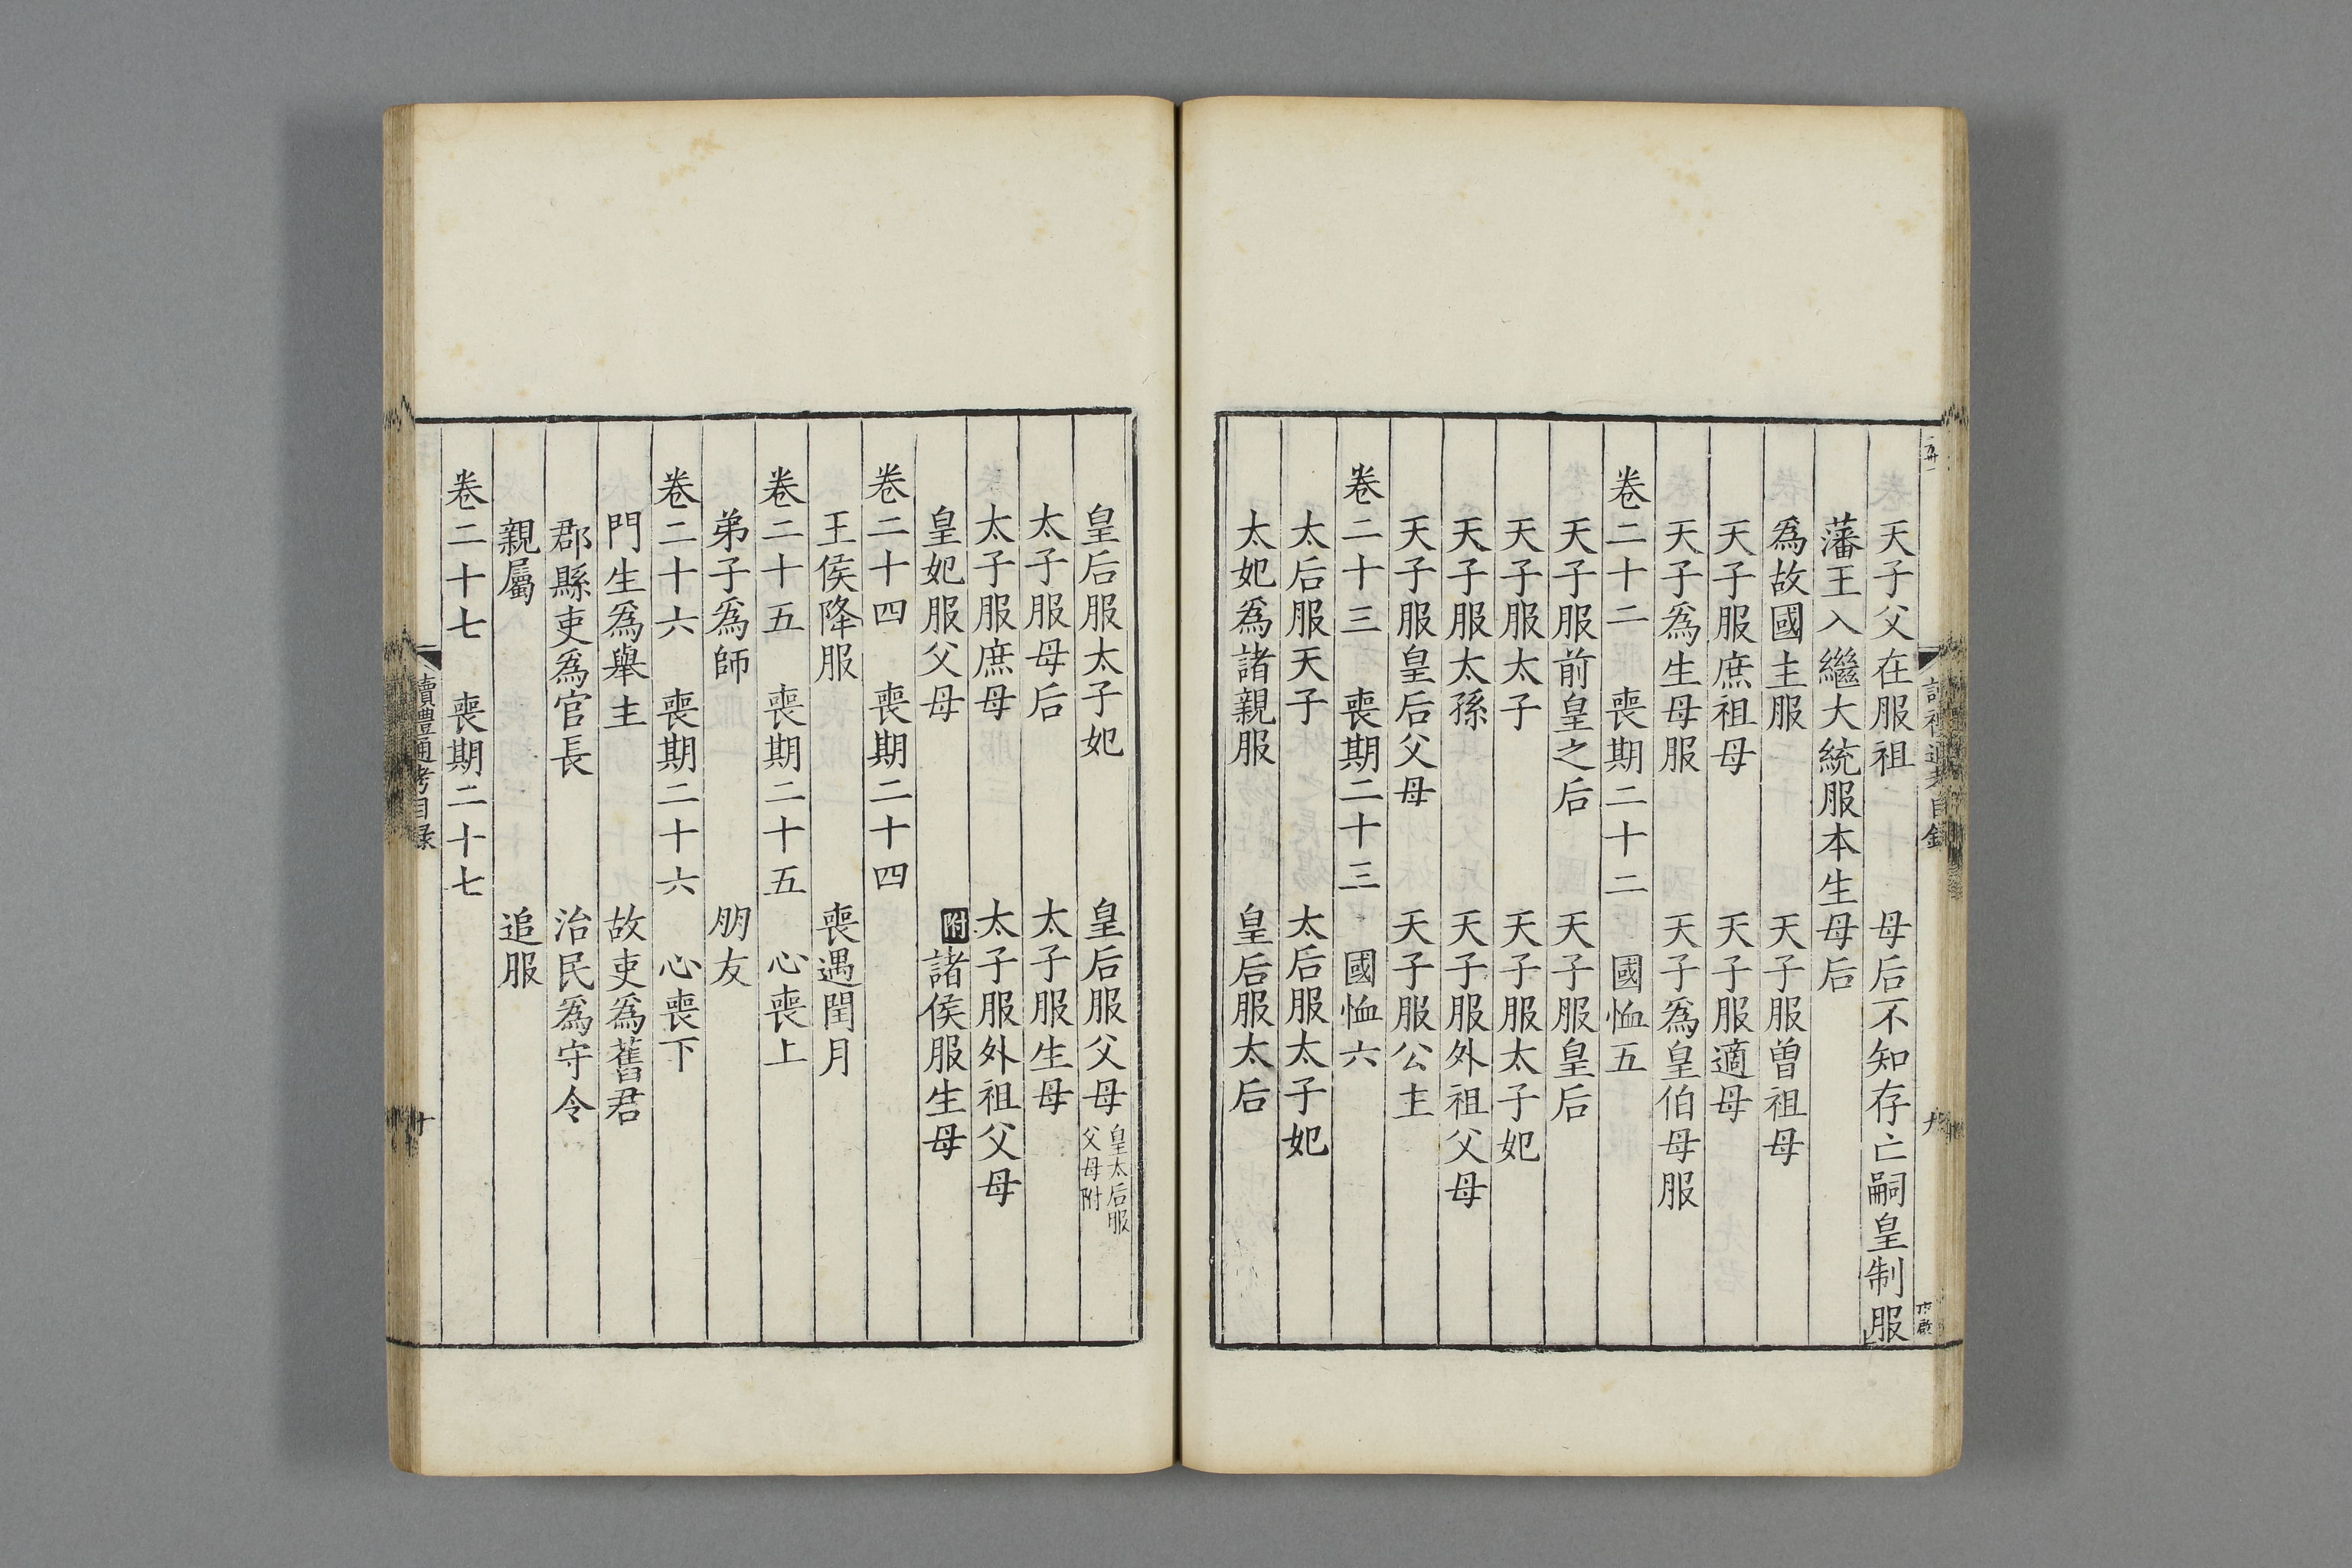 天子父在服祖　母后不知存亡嗣皇制服
藩王入繼大統服本生母后
爲故國主服　天子服曾祖母
天子服庶祖母　天子服適母
天子爲生母服　天子爲皇伯母服
卷二十二　喪期二十二　國恤五
天子服前皇之后　天子服皇后
天子服太子　天子服太子妃
天子服太孫　天子服外祖父母
天子服皇后父母　天子服公主
卷二十三　喪期二十三　國恤六
太后服天子　太后服太子妃
太妃爲諸親服　皇后服太后
皇后服太子妃　皇后服父母皇太后服父母附
太子服母后　太子服生母
太子服庶母　太子服外祖父母
皇妃服父母　附諸侯服生母
卷二十四　喪期二十四
王侯降服　喪遇閏月
卷二十五　喪期二十五　心喪上
弟子爲師　朋友
卷二十六　喪期二十六　心喪下
門生爲舉主　故吏爲舊君
郡縣吏爲官長　治民爲守令
親屬　追服
卷二十七　喪期二十七
讀禮通考目録　十